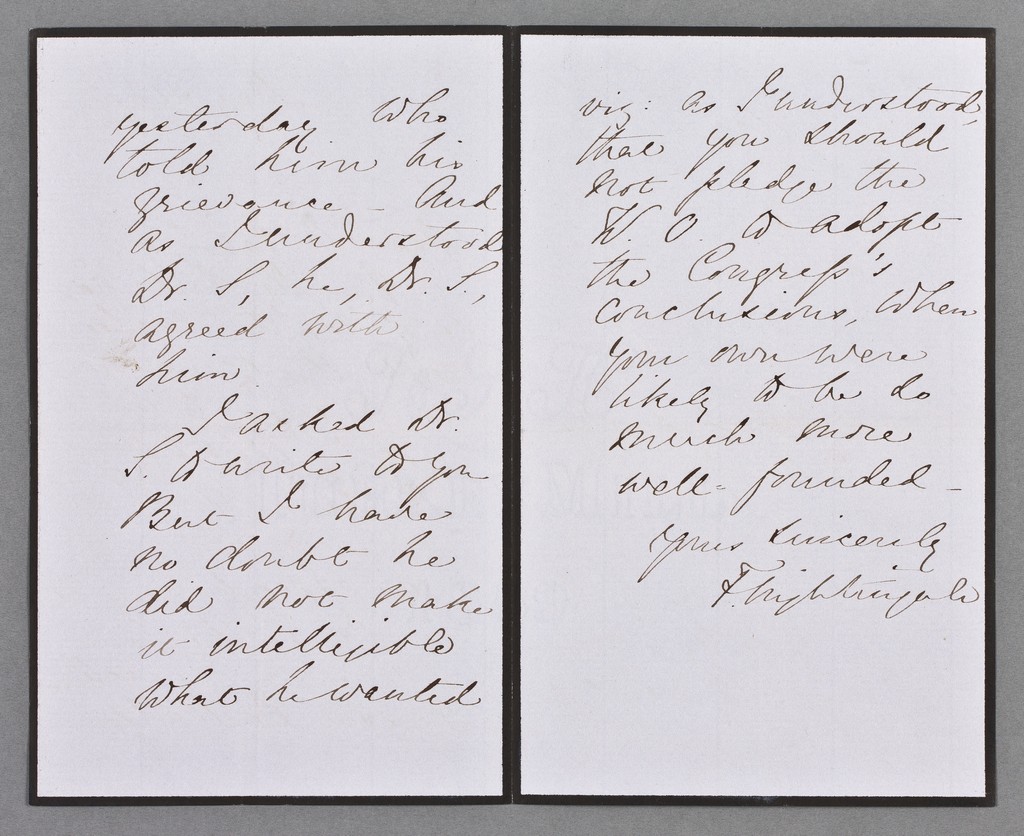 yesterday who
told him his
grievance - And
as I understood
Dr. S, he, Dr. S.,
agreed with
him.
I asked Dr.
S. to write to you
But I have
no doubt he
did not make
it intelligible
what he wanted
viz: as I understood,
that you should
not pledge the
W. O. to adopt
the Congress's
conclusions, when
your own were
likely to be so
much more
well-founded -
yours sincerely
F. Nightingale